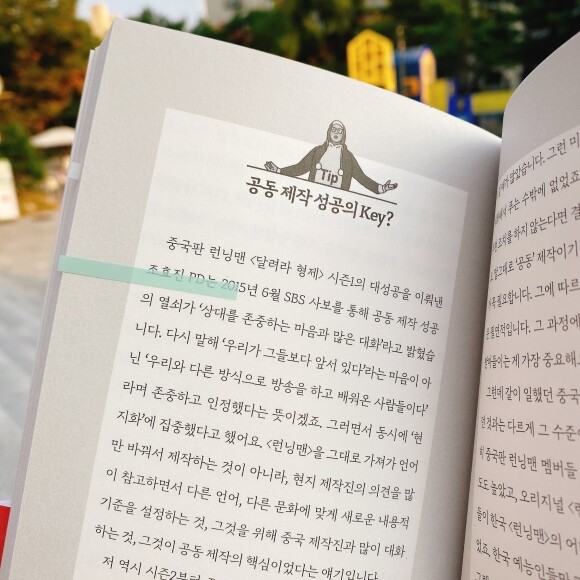 Tip
공동 제작 성공의 Key?
중국판 런닝맨 〈달려라 형제〉 시즌1의 대성공을 이뤄낸
조효진 PD는 2015년 6월 SBS 사보를 통해 공동 제작 성공
의 열쇠가 ‘상대를 존중하는 마음과 많은 대화’라고 밝혔습
니다. 다시 말해 ‘우리가 그들보다 앞서 있다’라는 마음이 아
닌 ‘우리와 다른 방식으로 방송을 하고 배워온 사람들이다’
라며 존중하고 인정했다는 뜻이겠죠. 그러면서 동시에 ‘현
지화’에 집중했다고 했어요. 〈런닝맨〉을 그대로 가져가 언어
만 바꿔서 제작하는 것이 아니라, 현지 제작진의 의견을 많
이 참고하면서 다른 언어, 다른 문화에 맞게 새로운 내용적
기준을 설정하는 것, 그것을 위해 중국 제작진과 많이 대화
하는 것, 그것이 공동 제작의 핵심이었다는 얘기입니다.
저 역시 시즌2부터
많았습니다. 그런 미
두는 수밖에 없었죠
하지 않는다면 결
그대로 ‘공동’ 제작이기
필요합니다. 그에 따르
편적입니다. 그 과정에
만들이는 게 가장 중요해
그런데 같이 일했던 중국
던 것과는 다르게 그 수준이
히 중국판 런닝맨 멤버들
도도 높았고, 오리지널
들이 한국 〈런닝맨〉의 어
었죠. 한국 예능인들만